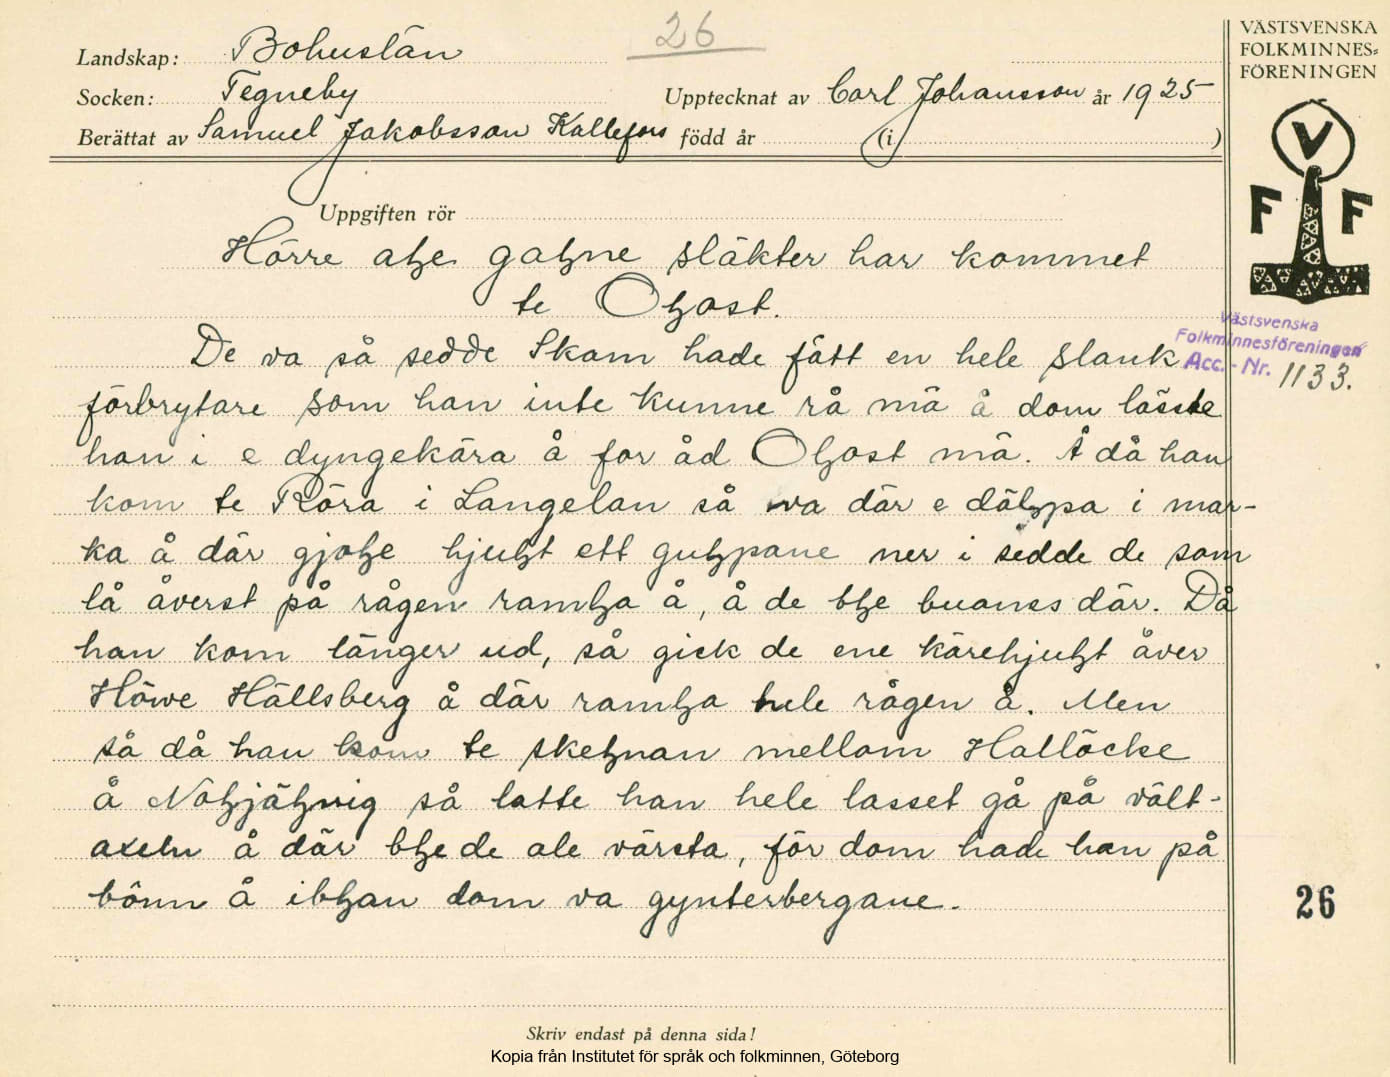 26
Landskap: Bohuslän
Socken: Tegneby
Upptecknat av Carl Johansson år 1925
Berättat av Samuel Jakobsson Kallefors född år (i )
Uppgiften rör
VÄSTSVENSKA
FOLKMINNES-
FÖRENINGEN
V
F F
Hörre aꝇe gaꝇne släkter har kommet
te Oꝇost.
De va så sedde Skam hade fått en hele slank
förbrytare som han inte kunne rå mä å dom lässte
han i e dyngekära å for åd Oꝇost mä. Å då han
kom te Röra i Langelan så va där e däꝇpa i mar-
ka å där gjoꝇe hjuꝇt ett guꝇpane ner i sedde de som
lå åverst på rågen ramꝇa å, å de bꝇe buanes där. Då
han kom länger ud, så gick de ene kärehjuꝇt åver
Höwe Hällsberg å där ramꝇa hele rågen å. Men
så då han kom te skeꝇnan mellom Halläcke
å Noꝇjäꝇvig så latte han hele lasset gå på vält-
axeln å där bꝇe de ale värsta, för dom hade han på
bönn å ibꝇan dom va gynterbergane.
Västsvenska
Folkminnesföreningen
Acc.-Nr. 1133.
26
Skriv endast på denna sida!
Kopia från Institutet för språk och folkminnen, Göteborg